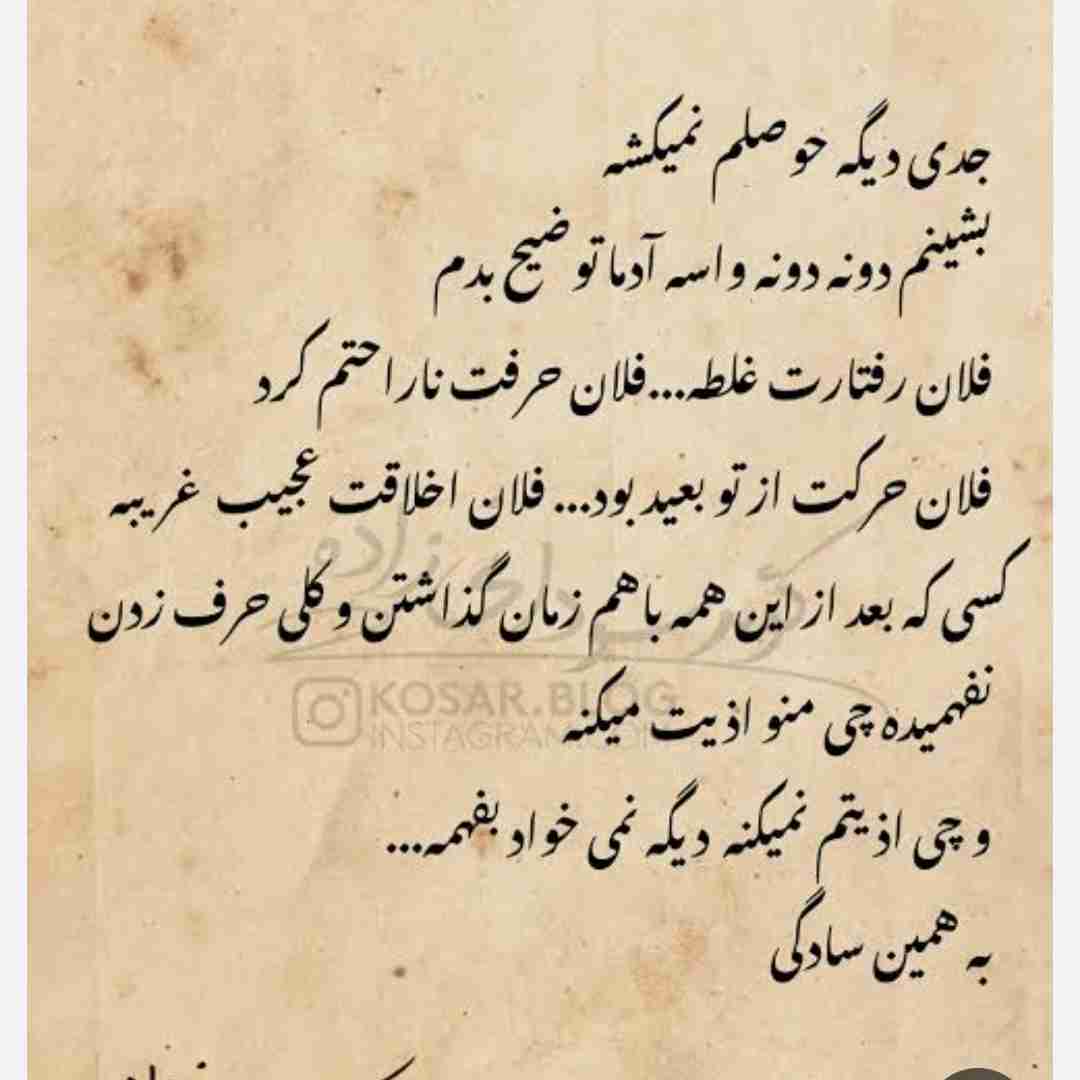 جدی دیگه حوصلم نمیکشه
بشینم دونه دونه واسه آدما توضیح بدم
فلان رفتارت غلطه...فلان حرفت ناراحتم کرد
فلان حرکت از تو بعید بود... فلان اخلاقت عجیب غریبه
کسی که بعد از این همه باهم زمان گذاشتن و کلی حرف زدن
نفهمیده چی منو اذیت میکنه
KOSAR.BLOG
INSTAGRAM.COM
و چی اذیتم نمیکنه دیگه نمی خواد بفهمه...
به همین سادگی